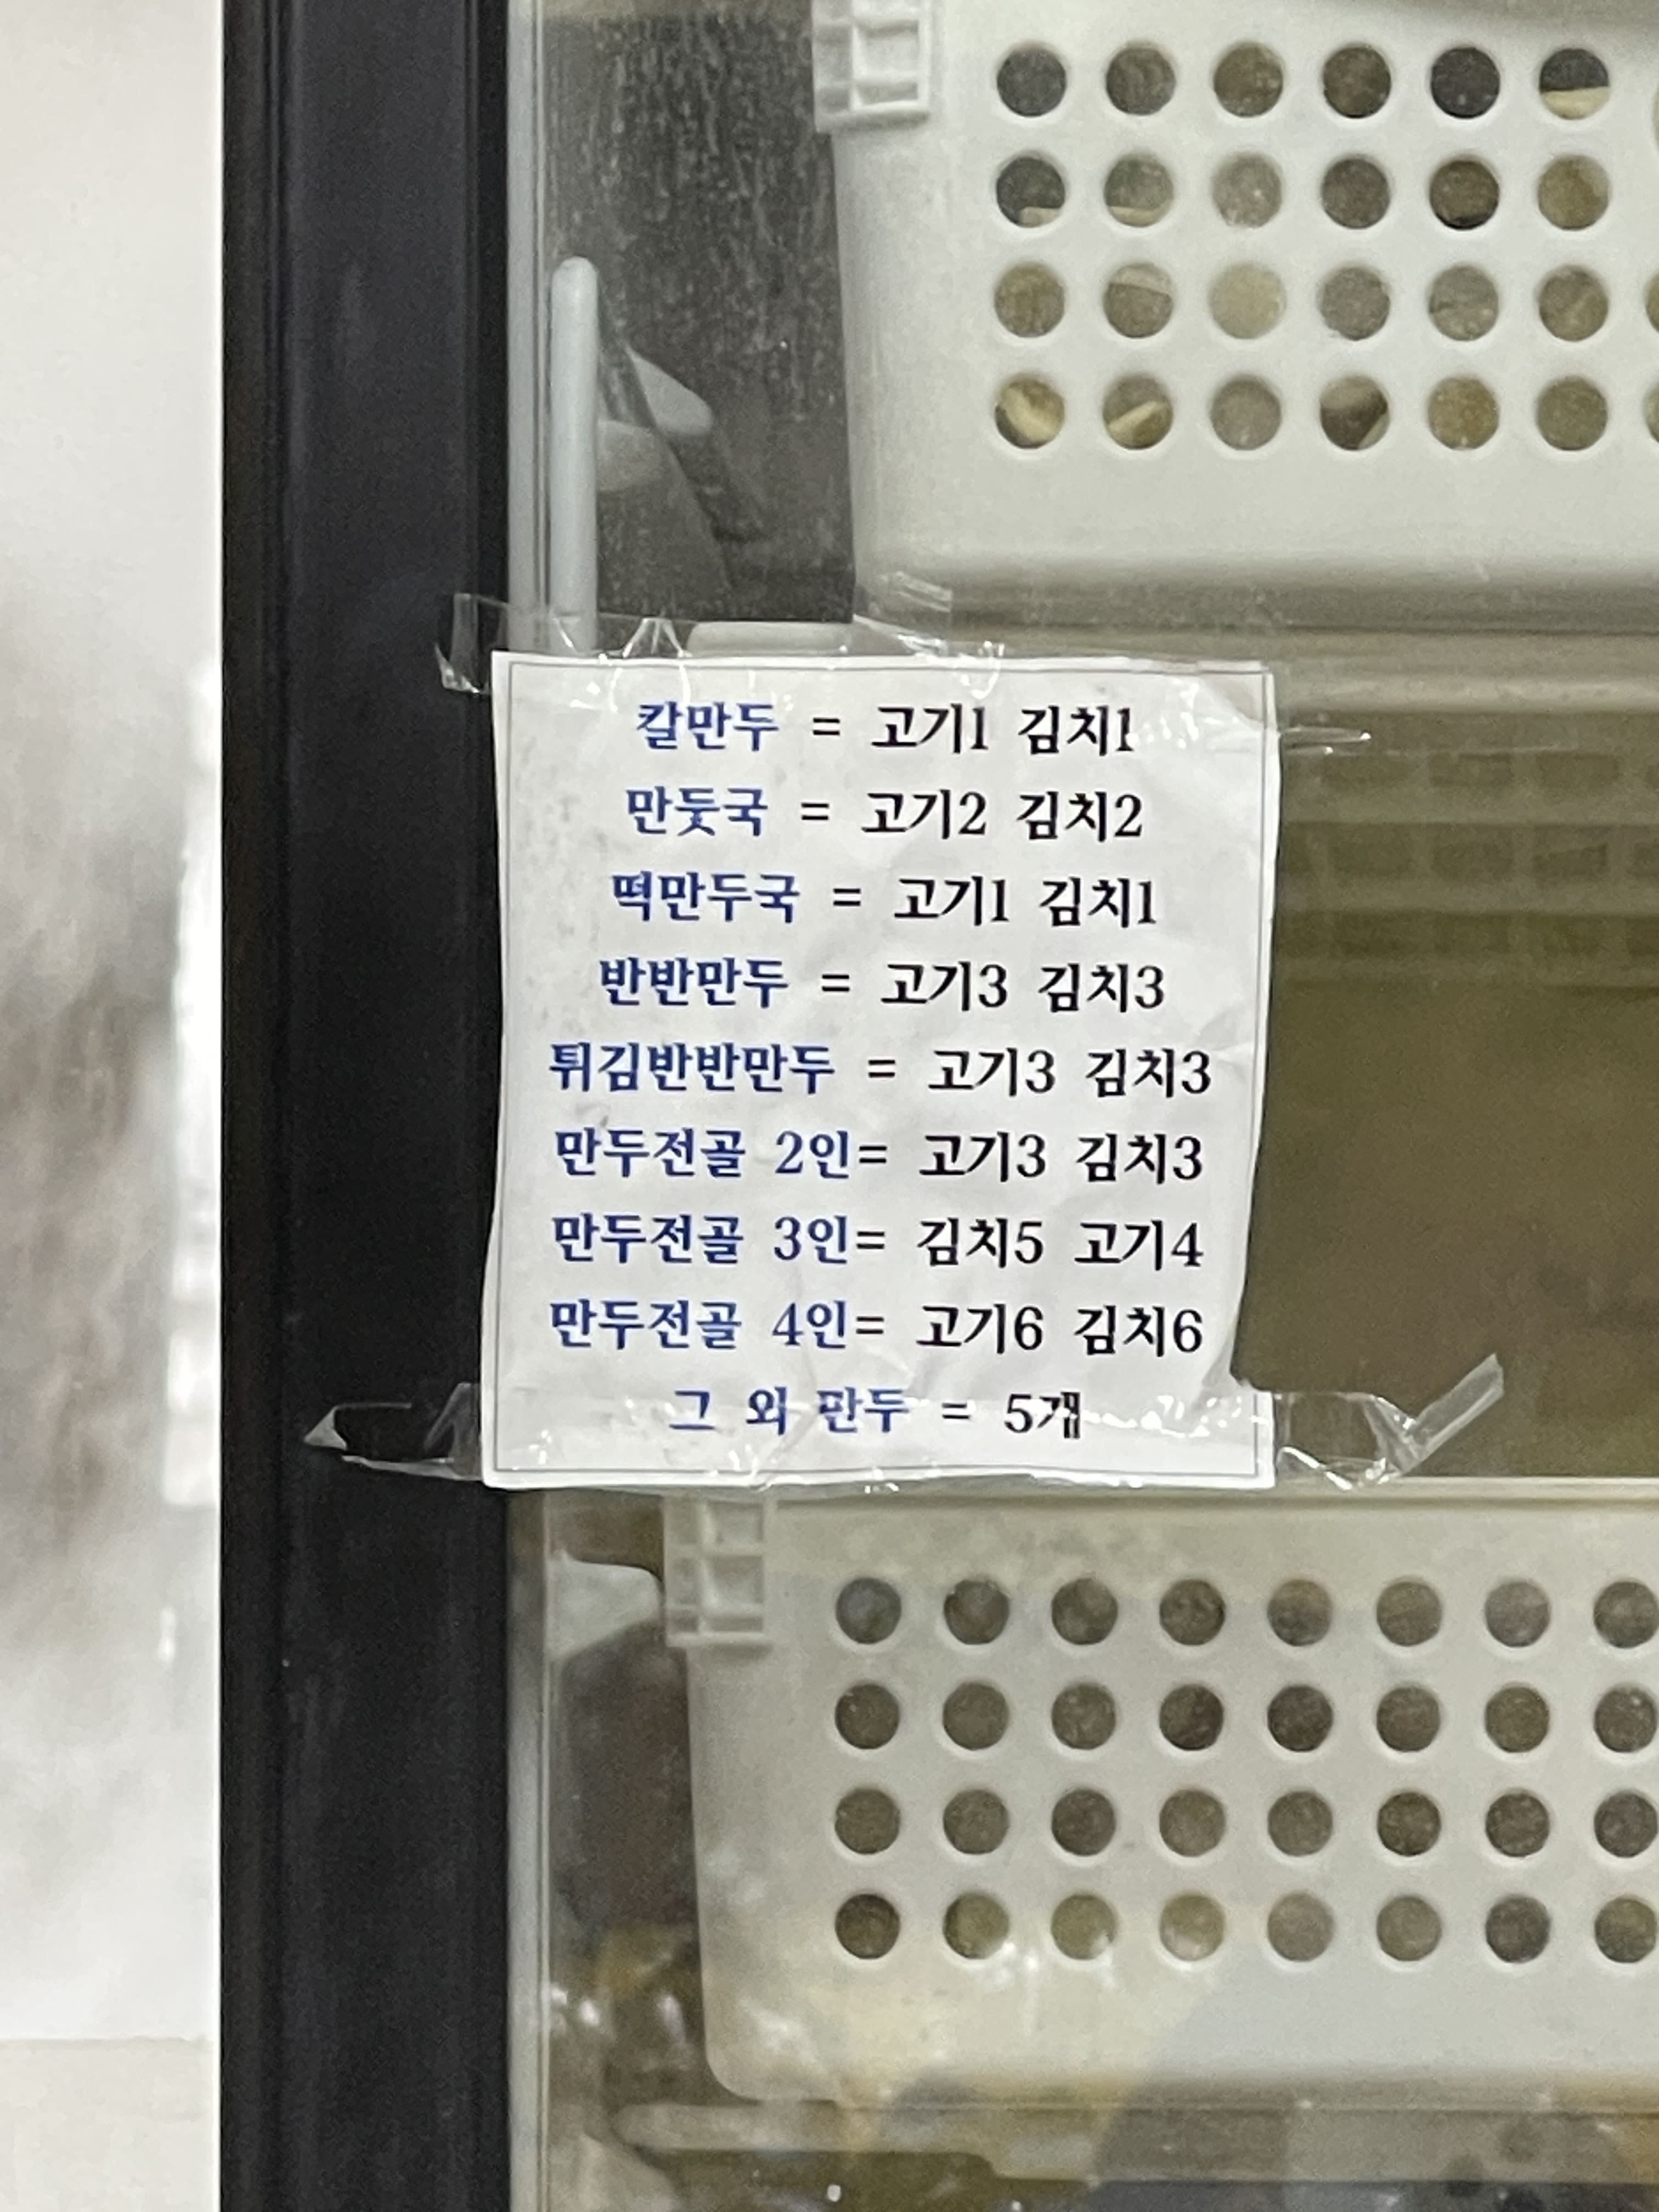 칼만두 = 고기1 김치1
만둣국 = 고기2 김치2
떡만두국 = 고기1 김치1
반반만두 = 고기3 김치3
튀김반반만두 = 고기3 김치3
만두전골 2인= 고기3 김치3
만두전골 3인= 김치5 고기4
만두전골 4인= 고기6 김치6
그 외 만두 = 5개